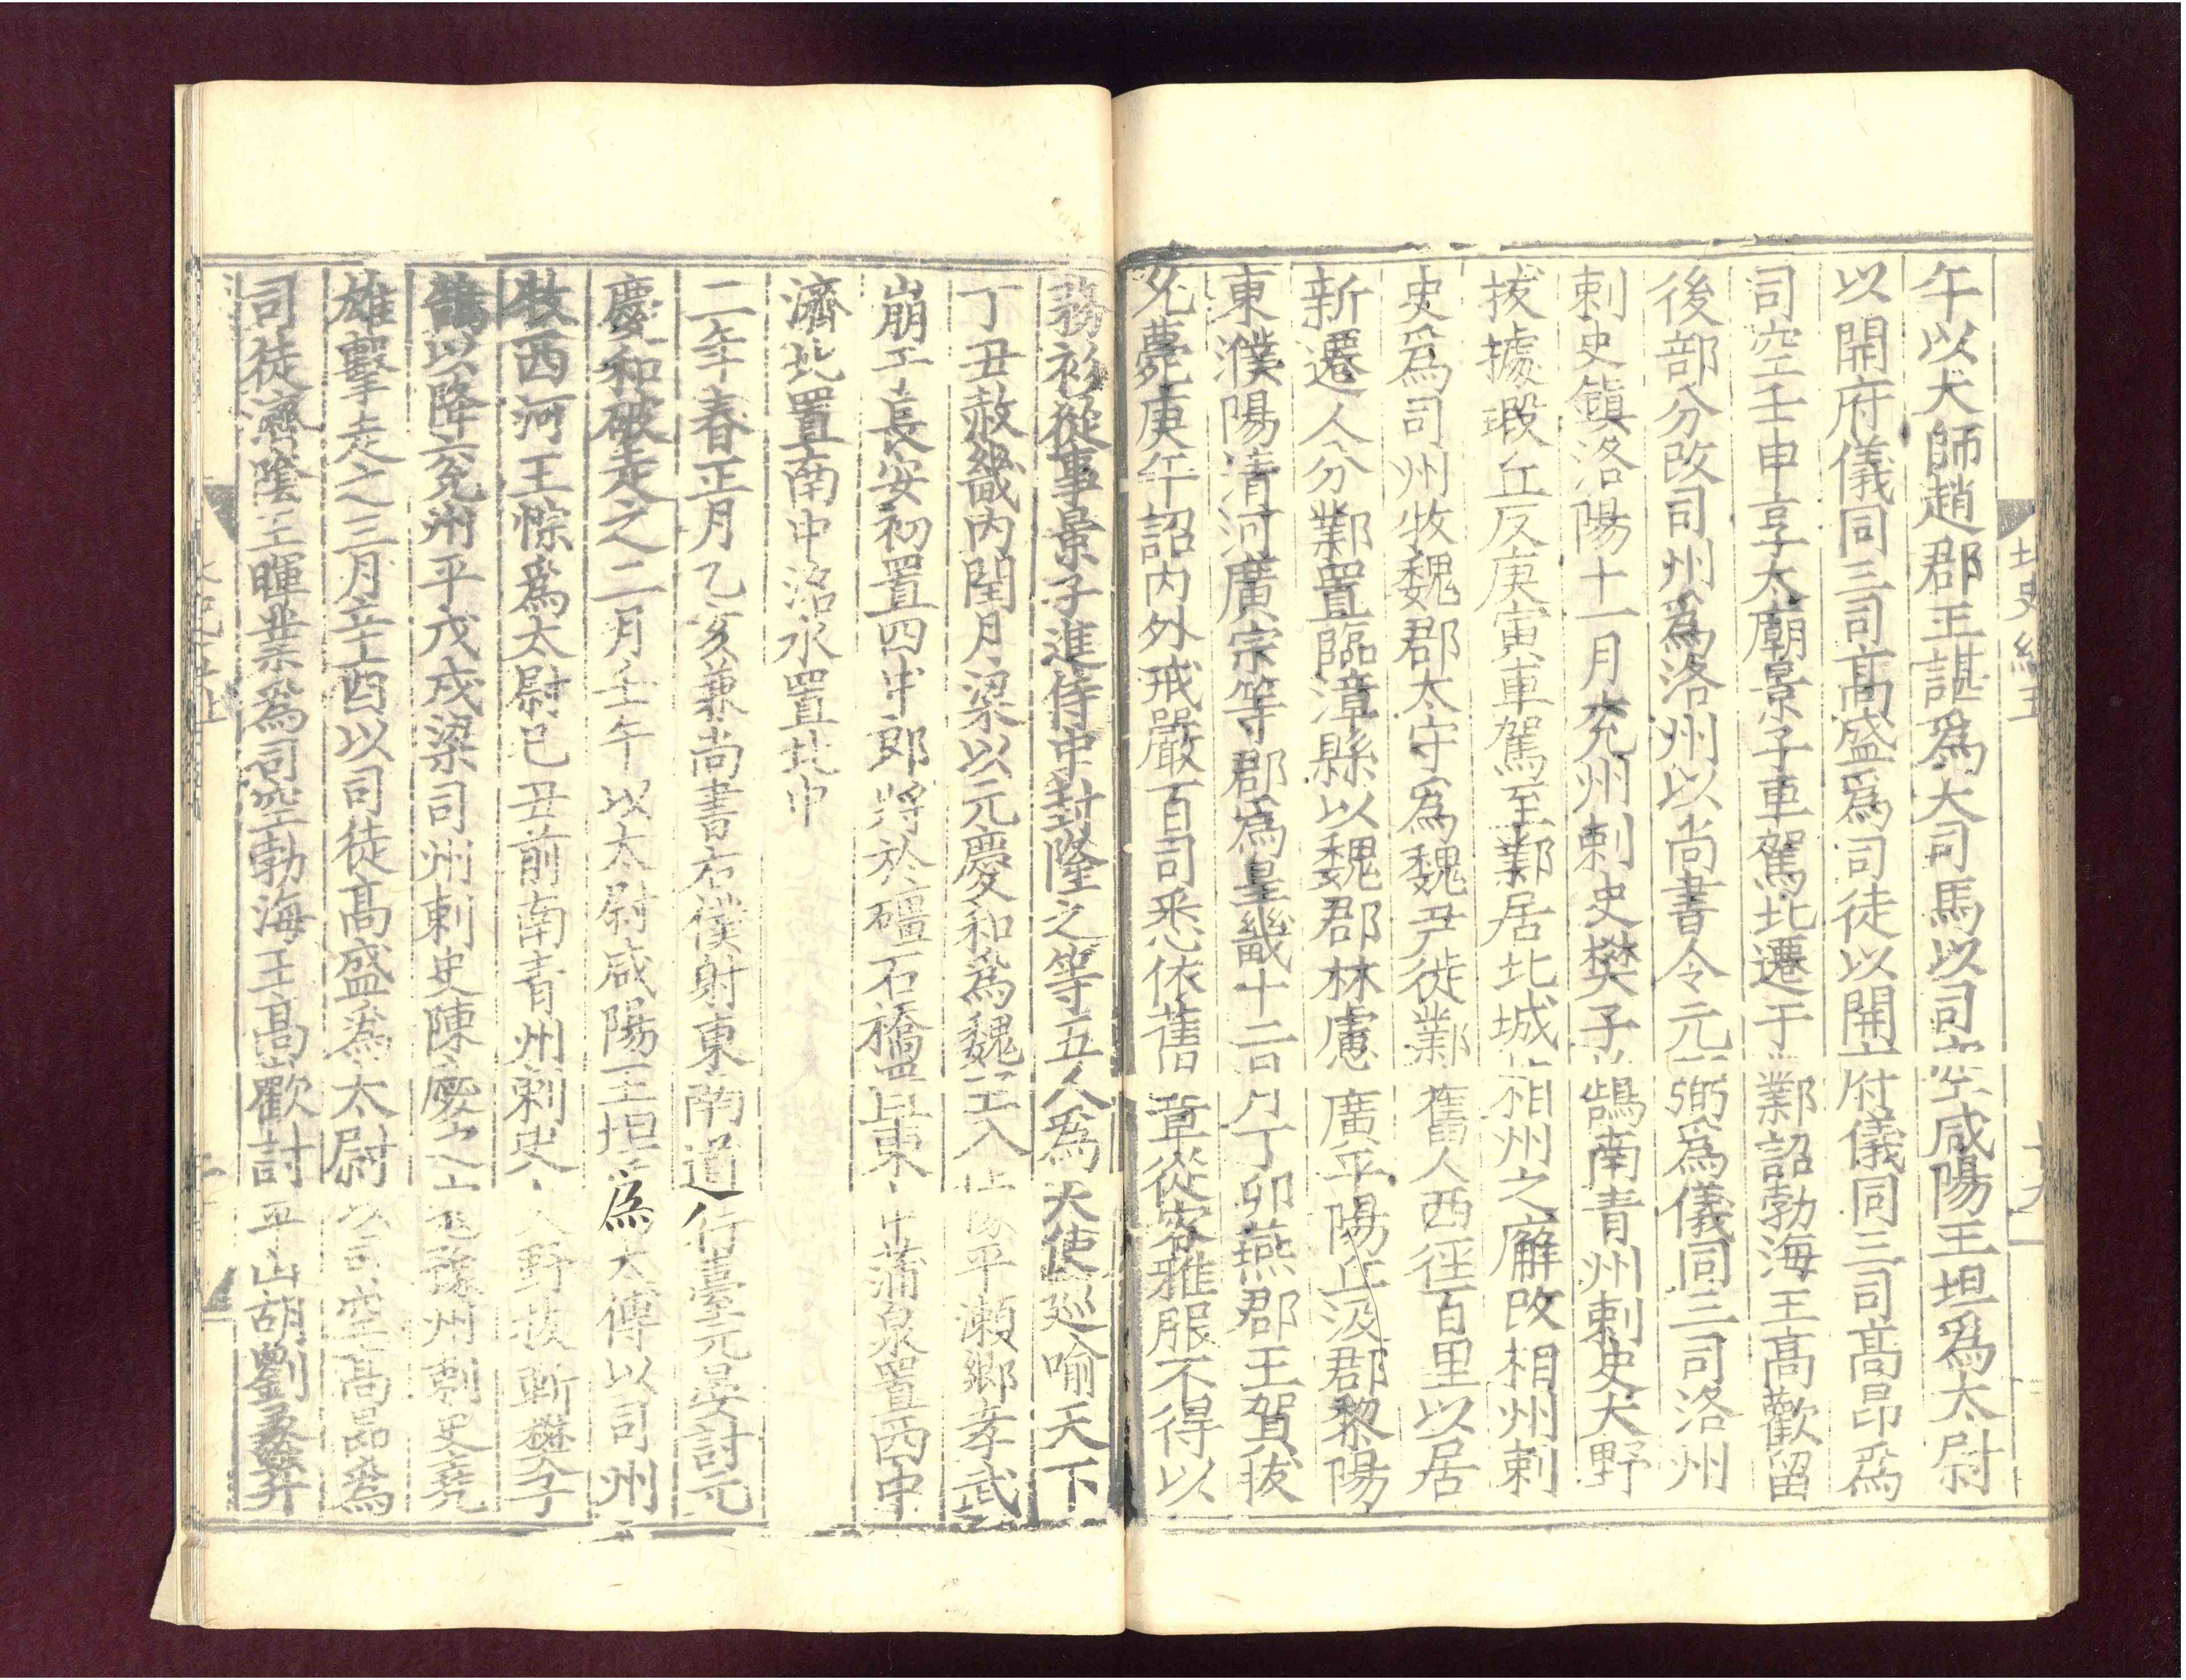 北史紀五
午以大師趙郡王諶爲大司馬以司空咸陽王坦爲太尉
以開府儀同三司髙盛爲司徒以開府儀同三司髙昂爲
司空壬申享太廟景子車駕北遷于鄴詔勃海王髙歡留
後部分改司州爲洛州以尚書令元弼爲儀同三司洛州
刺史鎮洛陽十一月兖州刺史樊子鵠南青州刺史大野
拔據瑕丘反庚寅車駕至鄴居北城相州之廨改相州刺
史爲司州牧魏郡太守爲魏尹徙鄴舊人西徑百里以居
新遷人分鄴置臨漳縣以魏郡林慮廣平陽丘汲郡黎陽
東濮陽清河廣宗等郡爲皇畿十二月丁卯燕郡王賀拔
允薨庚午詔内外戒嚴百司悉依舊章從容雅服不得以
務衫從事景子進侍中封隆之等五人爲大使巡喻天下
丁丑赦畿内閏月梁以元慶和爲魏王入據平瀨鄉孝武
崩于長安初置四中郎將於礓石橋置東中蒲泉置西中
濟北置南中洺水置北中
二年春正月乙亥兼尚書右僕射東南道行臺元晏討元
慶和破走之二月壬午以太尉咸陽王坦爲太傅以司州
牧西河王悰爲太尉己丑前南青州刺史大野拔斬樊子
鵠以降兖州平戊戌梁司州刺史陳慶之寇豫州刺史堯
雄擊走之三月辛酉以司徒髙盛爲太尉以司空髙昂爲
司徒濟陰王暉業爲司空勃海王髙歡討平山胡劉蠡升